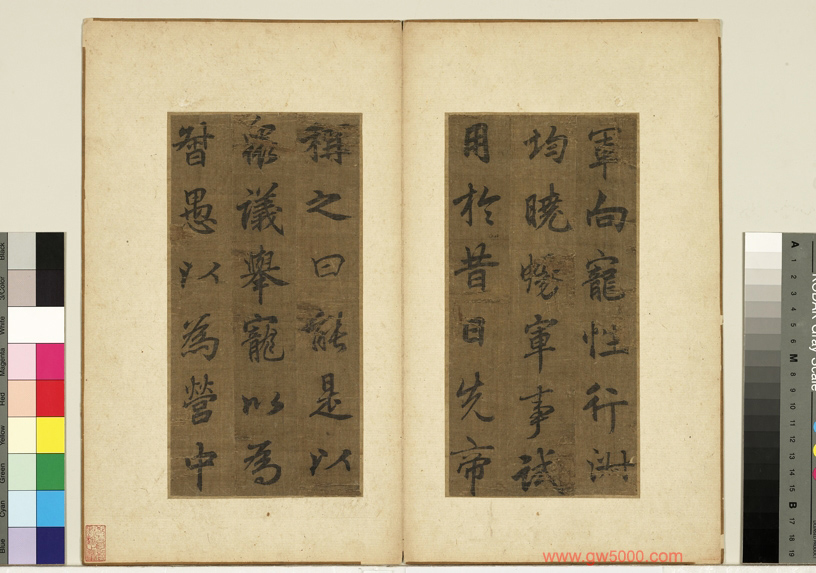 軍向寵性行淑
均曉暢軍事試
用於昔日先帝
稱之曰能是以
衆議舉寵以為
督愚以為營中
www.gw5000.com
Black
3/Color
White
Magenta
Red
Yellow
Green
Cyan
Blue
A 1 2 3 4 5 6 M 8 9 10 11 12 13 14 15 B 17 18 19